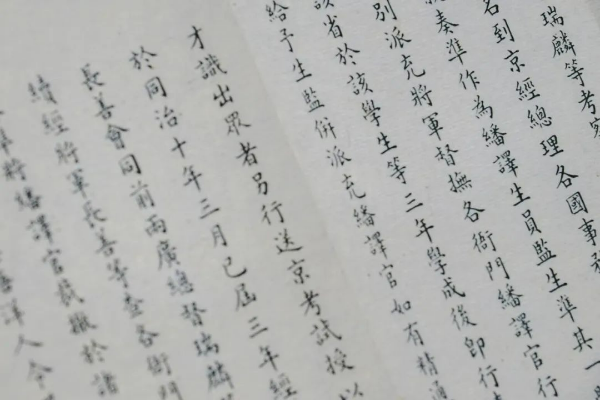 瑞麟等考察
名到京經總理各國事務
奏準作為繙譯生員監生準其一
別派充將軍督撫各衙門繙譯官行
該省於該學生等三年學成後即行
給予生監併派充繙譯官如有精通
才識出眾者另行送京考試授以
於同治十年三月已屆三年經
長善會同前兩廣總督瑞麟
續經將軍長善等查各衙門
事將繙譯官裁撤於諸
洋人令